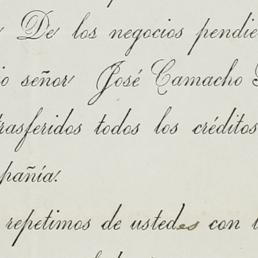 De los negocios pendie
io señor José Camacho
trasferidos todos los créditos
pañía.
repetimos de ustedes con